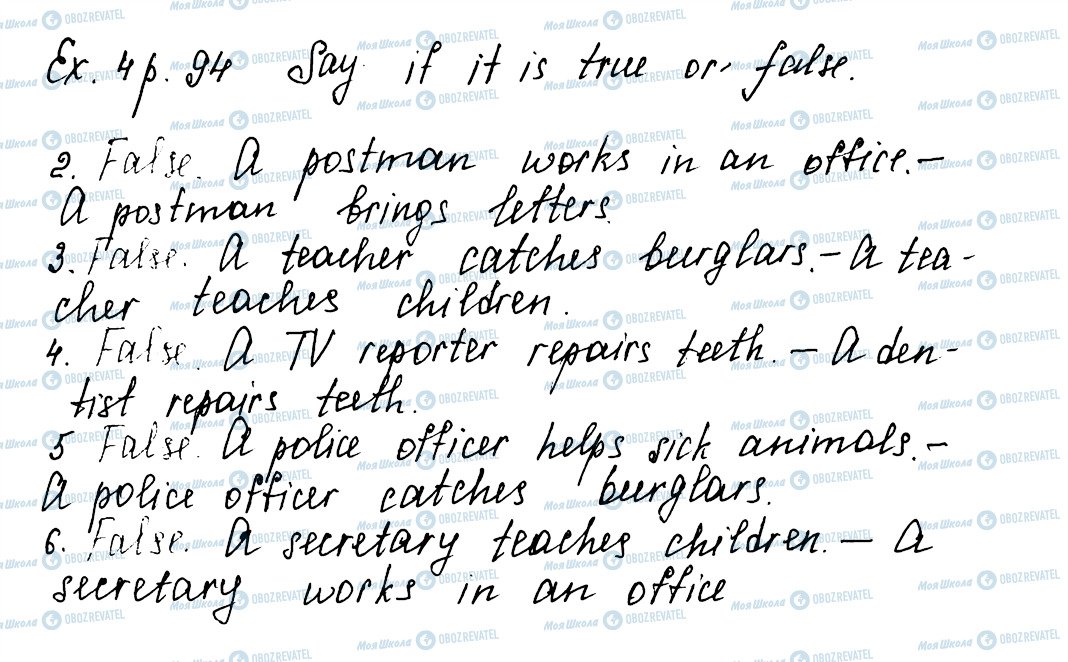 Ex. 4 p. 94 Say if it is true or false.
2. False. A postman works in an office. –
A postman brings letters.
3. False. A teacher catches burglars. – A tea-
cher teaches children.
4. False. A TV reporter repairs teeth. – A den-
tist repairs teeth.
5 False. A police officer helps sick animals. –
A police officer catches burglars.
6. False. A secretary teaches children. – A
secretary works in an office
Моя Школа OBOZREVATEL